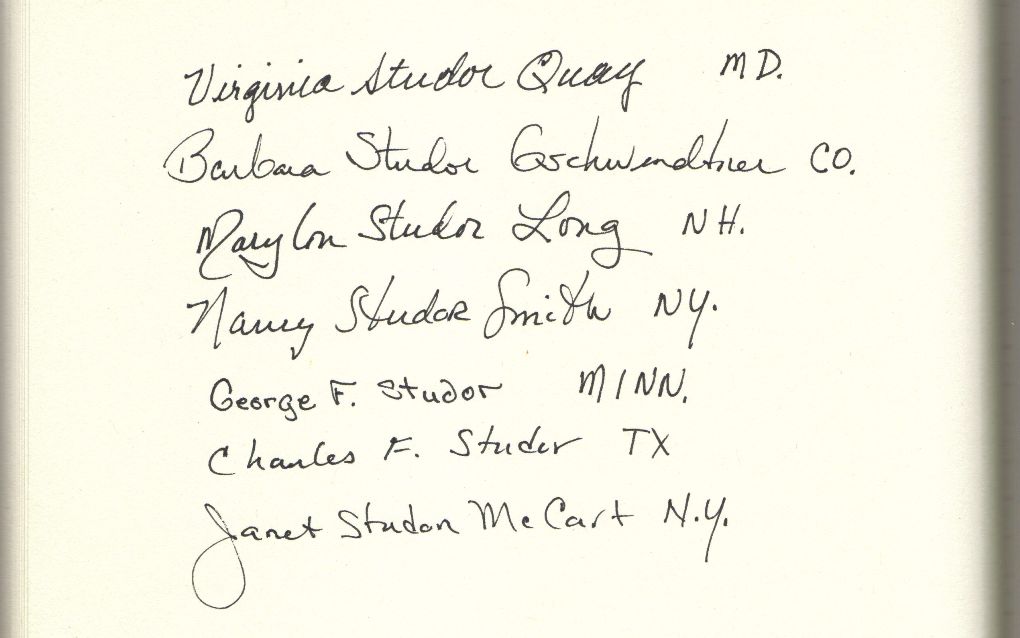 Virginia Studor Quay MD.
Barbara Studor Gschwendtner CO.
Marylou Studor Long NH.
Nancy Studor Smith NY.
George F. Studor MINN.
Charles F. Studor TX
Janet Studor McCart N.Y.